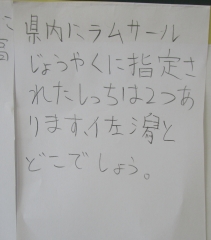 県内にラムサール
じょうやくに指定さ
れたしっちは2つあ
ります、佐潟と
どこでしょう。